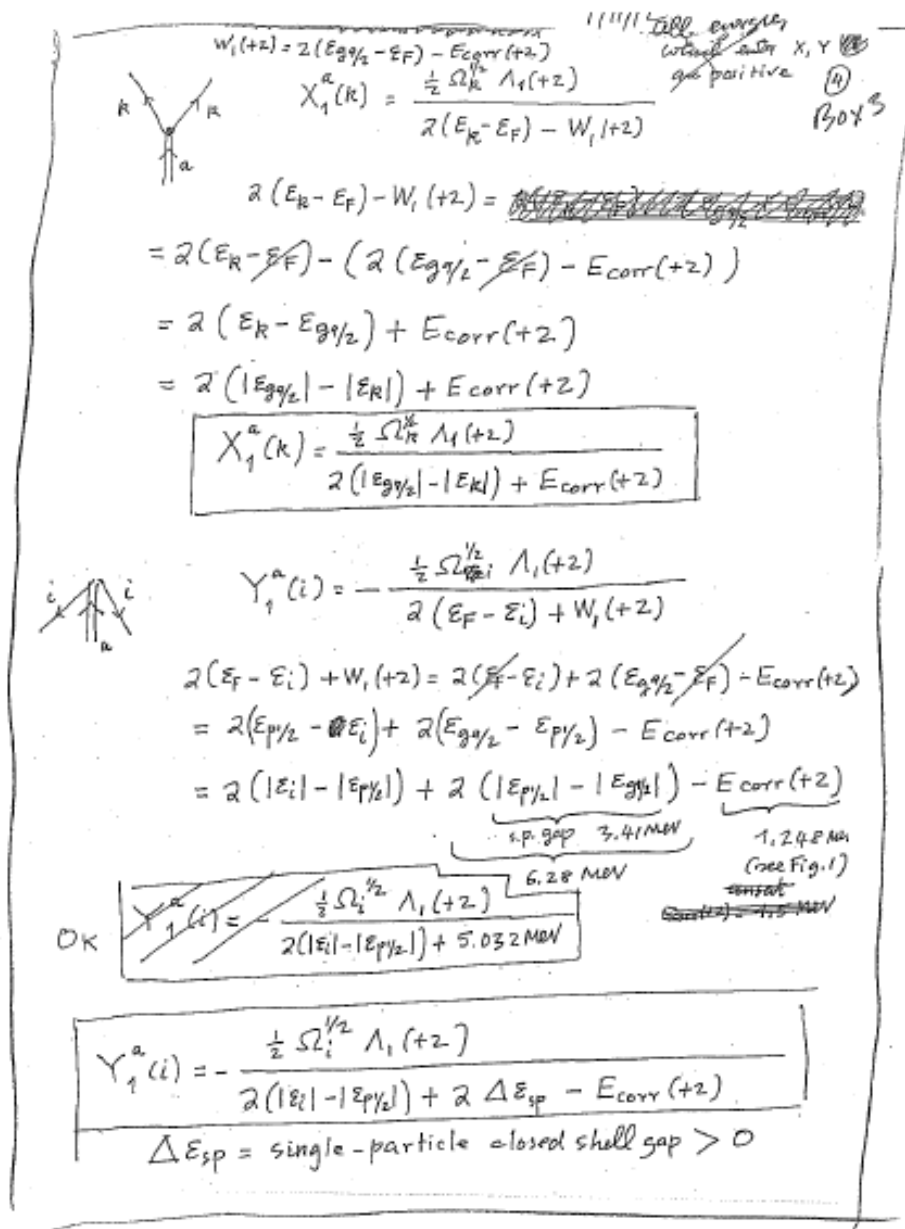 1/11/1
all energies
W₁(+2) = 2(εg9/2 − εF) − Ecorr(+2)
which enter X, Y
are positive
④
Box 3
X₁ᵃ(k) = ½ Ωk^½ Λ₁(+2) / 2(Ek − EF) − W₁(+2)
k k
a
2(εk − εF) − W₁(+2) =
= 2(εk − εF) − (2(εg9/2 − εF) − Ecorr(+2))
= 2(εk − εg9/2) + Ecorr(+2)
= 2(|εg9/2| − |εk|) + Ecorr(+2)
X₁ᵃ(k) = ½ Ωk^½ Λ₁(+2) / 2(|εg9/2| − |εk|) + Ecorr(+2)
Y₁ᵃ(i) = − ½ Ωi^1/2 Λ₁(+2) / 2(εF − εi) + W₁(+2)
i i
a
2(εF − εi) + W₁(+2) = 2(εF − εi) + 2(εg9/2 − εF) − Ecorr(+2)
= 2(εp1/2 − εi) + 2(εg9/2 − εp1/2) − Ecorr(+2)
= 2(|εi| − |εp1/2|) + 2(|εp1/2| − |εg9/2|) − Ecorr(+2)
s.p. gap 3.41 MeV
1.248 MeV
6.28 MeV
(see Fig. 1)
Ecorr(+2) = 1.5 MeV
OK Y₁ᵃ(i) = − ½ Ωi^1/2 Λ₁(+2) / 2(|εi| − |εp1/2|) + 5.032 MeV
Y₁ᵃ(i) = − ½ Ωi^1/2 Λ₁(+2) / 2(|εi| − |εp1/2|) + 2 Δεsp − Ecorr(+2)
Δεsp = single-particle closed shell gap > 0